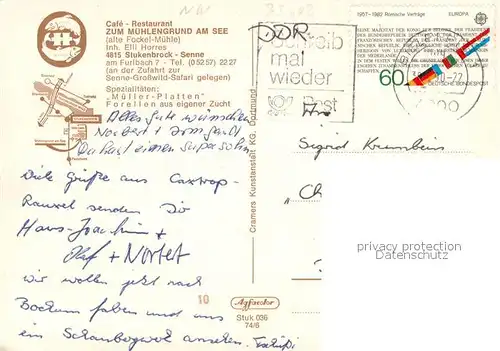 Café - Restaurant
ZUM MÜHLENGRUND AM SEE
(alte Fockel-Mühle)
Inh. Elli Horres
4815 Stukenbrock - Senne
am Furlbach 7 - Tel. (05257) 2227
(an der Zufahrt zur
Senne-Großwild-Safari gelegen)
Spezialitäten:
„Müller-Platten"
Forellen aus eigener Zucht
Alles gute wünschen
Norbert +
Du hast einen Supersohn
Viele Grüße aus Castrop-
Rauxel senden Dir
Hans-Joachim +
Olaf + Norbert
wir wollen jetzt nach
Bochum fahren und uns
ein Schaubergwerk ansehen. Tschüß
10
Agfacolor
Stuk 036
74/6
Cramers Kunstanstalt KG, Dortmund
DDR
Schreib
mal
wieder
Post
1957-1982 Römische Verträge EUROPA
60
DEUTSCHE BUNDESPOST
Sigrid
privacy protection
Datenschutz